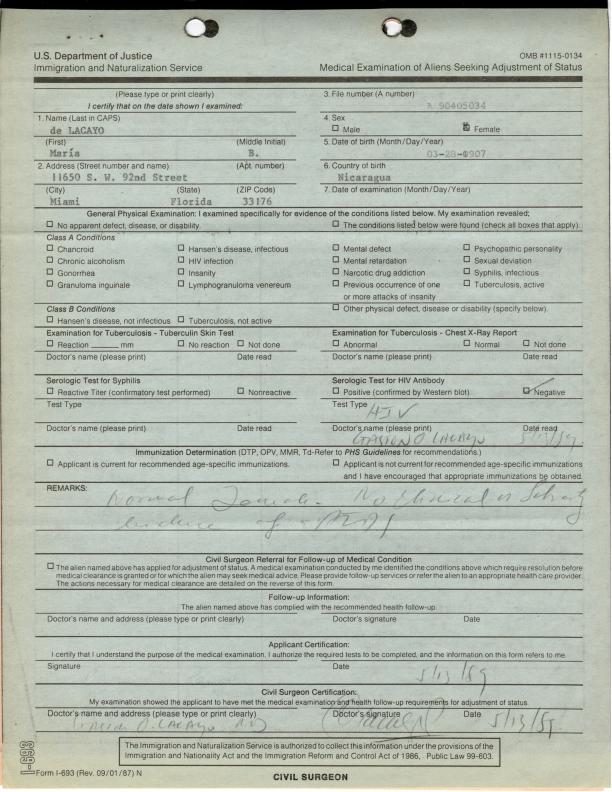 U.S. Department of Justice
Immigration and Naturalization Service
OMB #1115-0134
Medical Examination of Aliens Seeking Adjustment of Status
(Please type or print clearly)
I certify that on the date shown I examined:
3. File number (A number)
A 90405034
1. Name (Last in CAPS)
de LACAYO
4. Sex
☐ Male ☒ Female
(First) (Middle Initial)
María B.
5. Date of birth (Month/Day/Year)
03-28-1907
2. Address (Street number and name) (Apt. number)
11650 S. W. 92nd Street
6. Country of birth
Nicaragua
(City) (State) (ZIP Code)
Miami Florida 33176
7. Date of examination (Month/Day/Year)
General Physical Examination: I examined specifically for evidence of the conditions listed below. My examination revealed;
☐ No apparent defect, disease, or disability. ☐ The conditions listed below were found (check all boxes that apply).
Class A Conditions
☐ Chancroid ☐ Hansen's disease, infectious ☐ Mental defect ☐ Psychopathic personality
☐ Chronic alcoholism ☐ HIV infection ☐ Mental retardation ☐ Sexual deviation
☐ Gonorrhea ☐ Insanity ☐ Narcotic drug addiction ☐ Syphilis, infectious
☐ Granuloma inguinale ☐ Lymphogranuloma venereum ☐ Previous occurrence of one ☐ Tuberculosis, active
or more attacks of insanity
Class B Conditions
☐ Other physical defect, disease or disability (specify below).
☐ Hansen's disease, not infectious ☐ Tuberculosis, not active
Examination for Tuberculosis - Tuberculin Skin Test
☐ Reaction ____ mm ☐ No reaction ☐ Not done
Doctor's name (please print) Date read
Examination for Tuberculosis - Chest X-Ray Report
☐ Abnormal ☐ Normal ☐ Not done
Doctor's name (please print) Date read
Serologic Test for Syphilis
☐ Reactive Titer (confirmatory test performed) ☐ Nonreactive
Test Type
Doctor's name (please print) Date read
Serologic Test for HIV Antibody
☐ Positive (confirmed by Western blot) ☑ Negative
Test Type HIV
Doctor's name (please print) Date read
GASTON O. LACAYO 5/13/89
Immunization Determination (DTP, OPV, MMR, Td-Refer to PHS Guidelines for recommendations.)
☐ Applicant is current for recommended age-specific immunizations. ☐ Applicant is not current for recommended age-specific immunizations
and I have encouraged that appropriate immunizations be obtained.
REMARKS:
Normal Female. No Clinical or
of
Civil Surgeon Referral for Follow-up of Medical Condition
☐ The alien named above has applied for adjustment of status. A medical examination conducted by me identified the conditions above which require resolution before
medical clearance is granted or for which the alien may seek medical advice. Please provide follow-up services or refer the alien to an appropriate health care provider.
The actions necessary for medical clearance are detailed on the reverse of this form.
Follow-up Information:
The alien named above has complied with the recommended health follow-up.
Doctor's name and address (please type or print clearly) Doctor's signature Date
Applicant Certification:
I certify that I understand the purpose of the medical examination, I authorize the required tests to be completed, and the information on this form refers to me.
Signature Date
5/13/89
Civil Surgeon Certification:
My examination showed the applicant to have met the medical examination and health follow-up requirements for adjustment of status.
Doctor's name and address (please type or print clearly) Doctor's signature Date
GASTON O. LACAYO M.D. 5/13/89.
The Immigration and Naturalization Service is authorized to collect this information under the provisions of the
Immigration and Nationality Act and the Immigration Reform and Control Act of 1986, Public Law 99-603.
I-693
Form I-693 (Rev. 09/01/87) N
CIVIL SURGEON